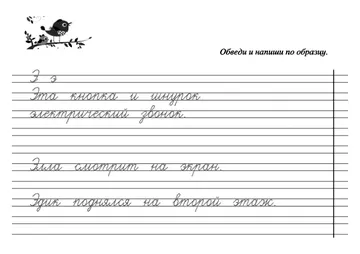 Обведи и напиши по образцу.
Э э
Эта кнопка и шнурок
электрический звонок.
Элла смотрит на экран.
Эдик поднялся на второй этаж.